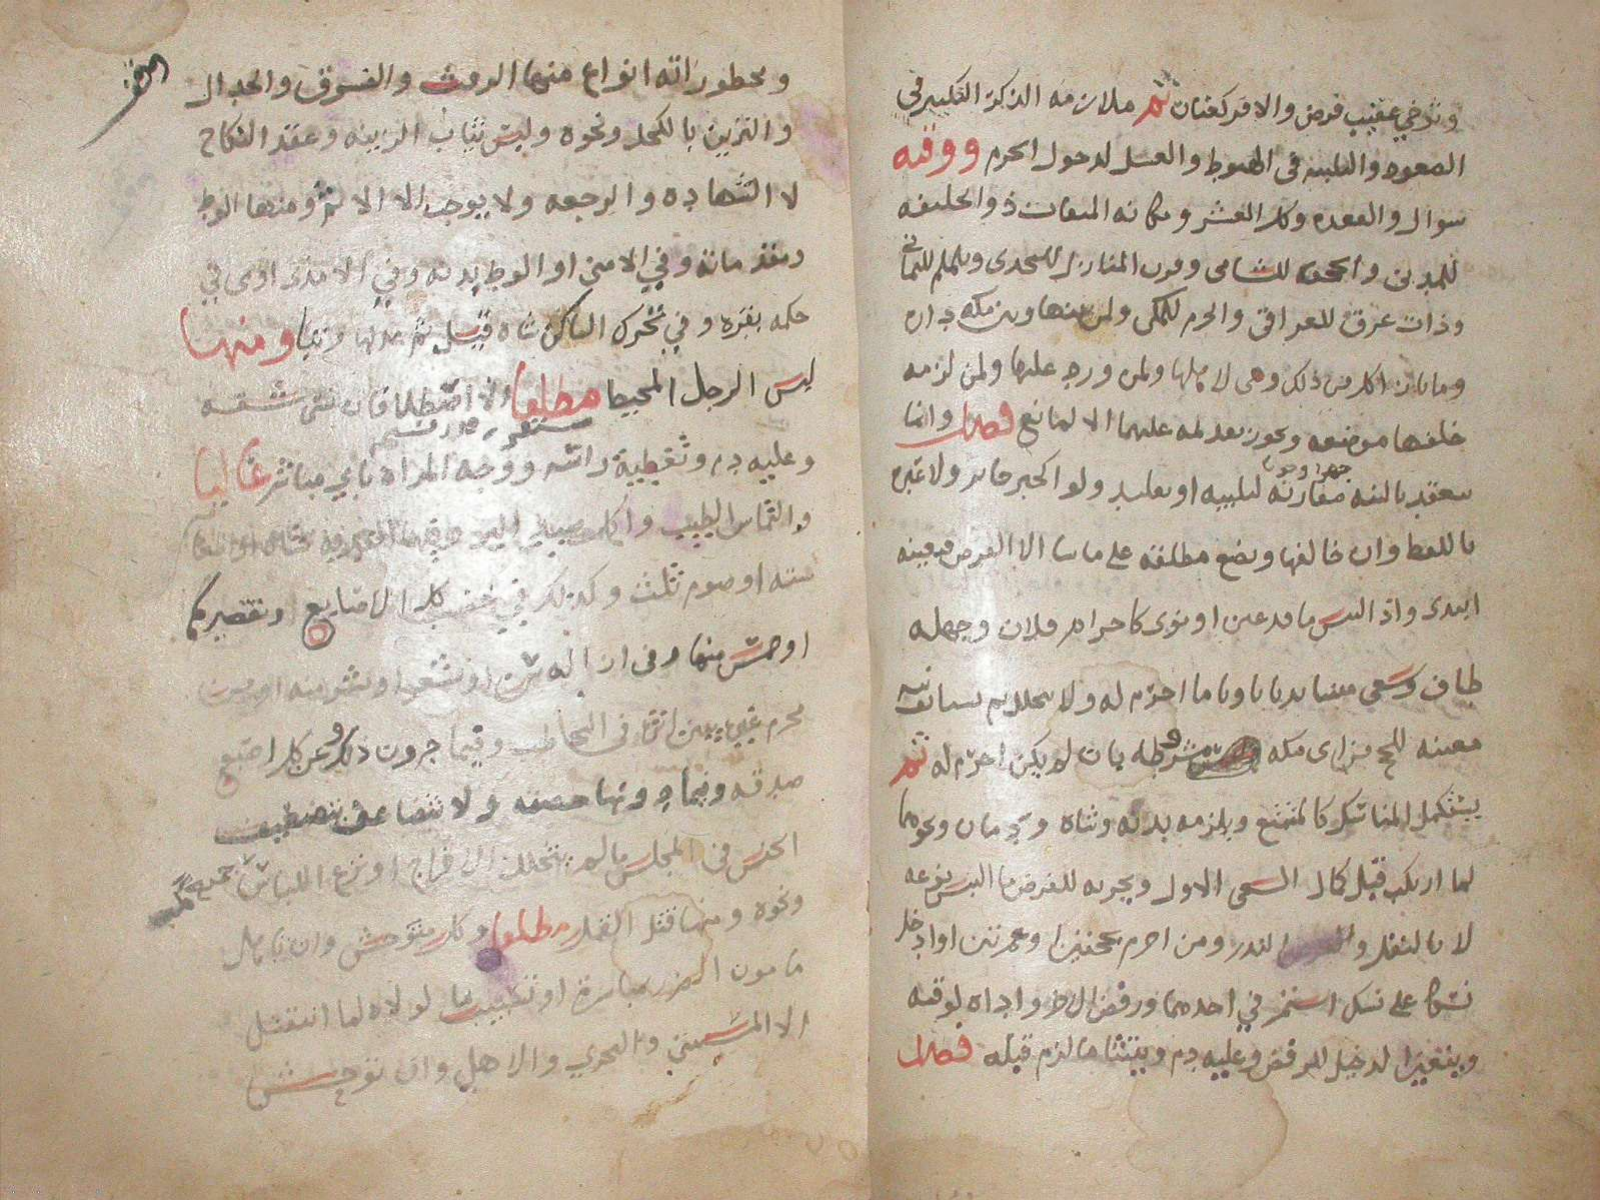 وتوخي عقيب فرض والا فركعتان ثم ملازمه الذكر التكبير في
الصعود والتلبيه في الهبوط والغسل لدخول الحرم ووقته
شوال والقعده وكل العشر ومكانه الميقات ذو الحليفه
للمدني والجحفه للشامي وقرن المنازل للنجدي ويلملم لليماني
وذات عرق للعراقي والحرم للمكي ولمن بينها وبين مكه داره
وما بازا كل من ذلك وهي لاهلها ولمن ورد عليها ولمن لزمه
خلفها موضعه ويجوز تقديمه عليها الا لمانع فصل وانما
ينعقد بالنيه مقارنه لتلبيه او تقليد ولو كخبر جابر ولا عبره
باللفظ وان خالفها ويضع مطلقه على ما شا الا الفرض فيعينه
ابتدى واذا التبس ما قد عين او نوى كاحرام فلان وجهله
طاف وسعى مثنيا ندبا ناويا ما احرم له ولا يتحلل ثم يستانف نيه
معينه للحج من اي مكه مشروطه بان لم يكن احرم له ثم
يستكمل المناسك كالمتمتع ويلزمه بدنه وشاه ودمان ونحوهما
لما ارتكب قبل كمال السعي الاول ويجزيه للفرض ما التبس نوعه
لا بالنفل والنذر ومن احرم بحجتين او عمرتين او ادخل
نسكا على نسك استمر في احدهما ورفض الاخر واداه لوقته
ويتعين الدخيل للرفض وعليه دم ويتثنا ما لزم قبله فصل
ومحظوراته انواع منها الرفث والفسوق والجدال
والتزين بالكحل ونحوه ولبس ثياب الزينه وعقد النكاح
لا الشهاده والرجعه ولا يوجب الا الاثم ومنها الوطي
ومقدماته وفي الامنى او الوطي بدنه وفي الامذى او في
حكمه بقره وفي تحرك الساكن شاه قيل ثم عدلها مرتبا ومنها
لبس الرجل المخيط مطلقا الا اضطرارا فان نسي شقه
وعليه دم وتغطية راسه ووجه المراه باي مباشر غالبا
والتماس الطيب واكل صيد البر
سته او صوم ثلث وكذلك في خضب كل الاصابع او تقصيرها
او خمس منها وفي ازاله سن او شعر او بشر منه او من
محرم غيره يبين اثره في التخاطب وفيما دون ذلك وعن كل اصبع
صدقه وفيما دونها حصته ولا تتضاعف بتضعيف
الجنس في المجلس ما لم يتخلل الاخراج او نزع اللباس
ونحوه ومنها قتل القمل مطلقا وكل متوحش وان تاهل
مامون الضرر مباشره او تسبيب بما لولاه لما انقتل
الا المستثنى والبحري والاهلي وان توحش